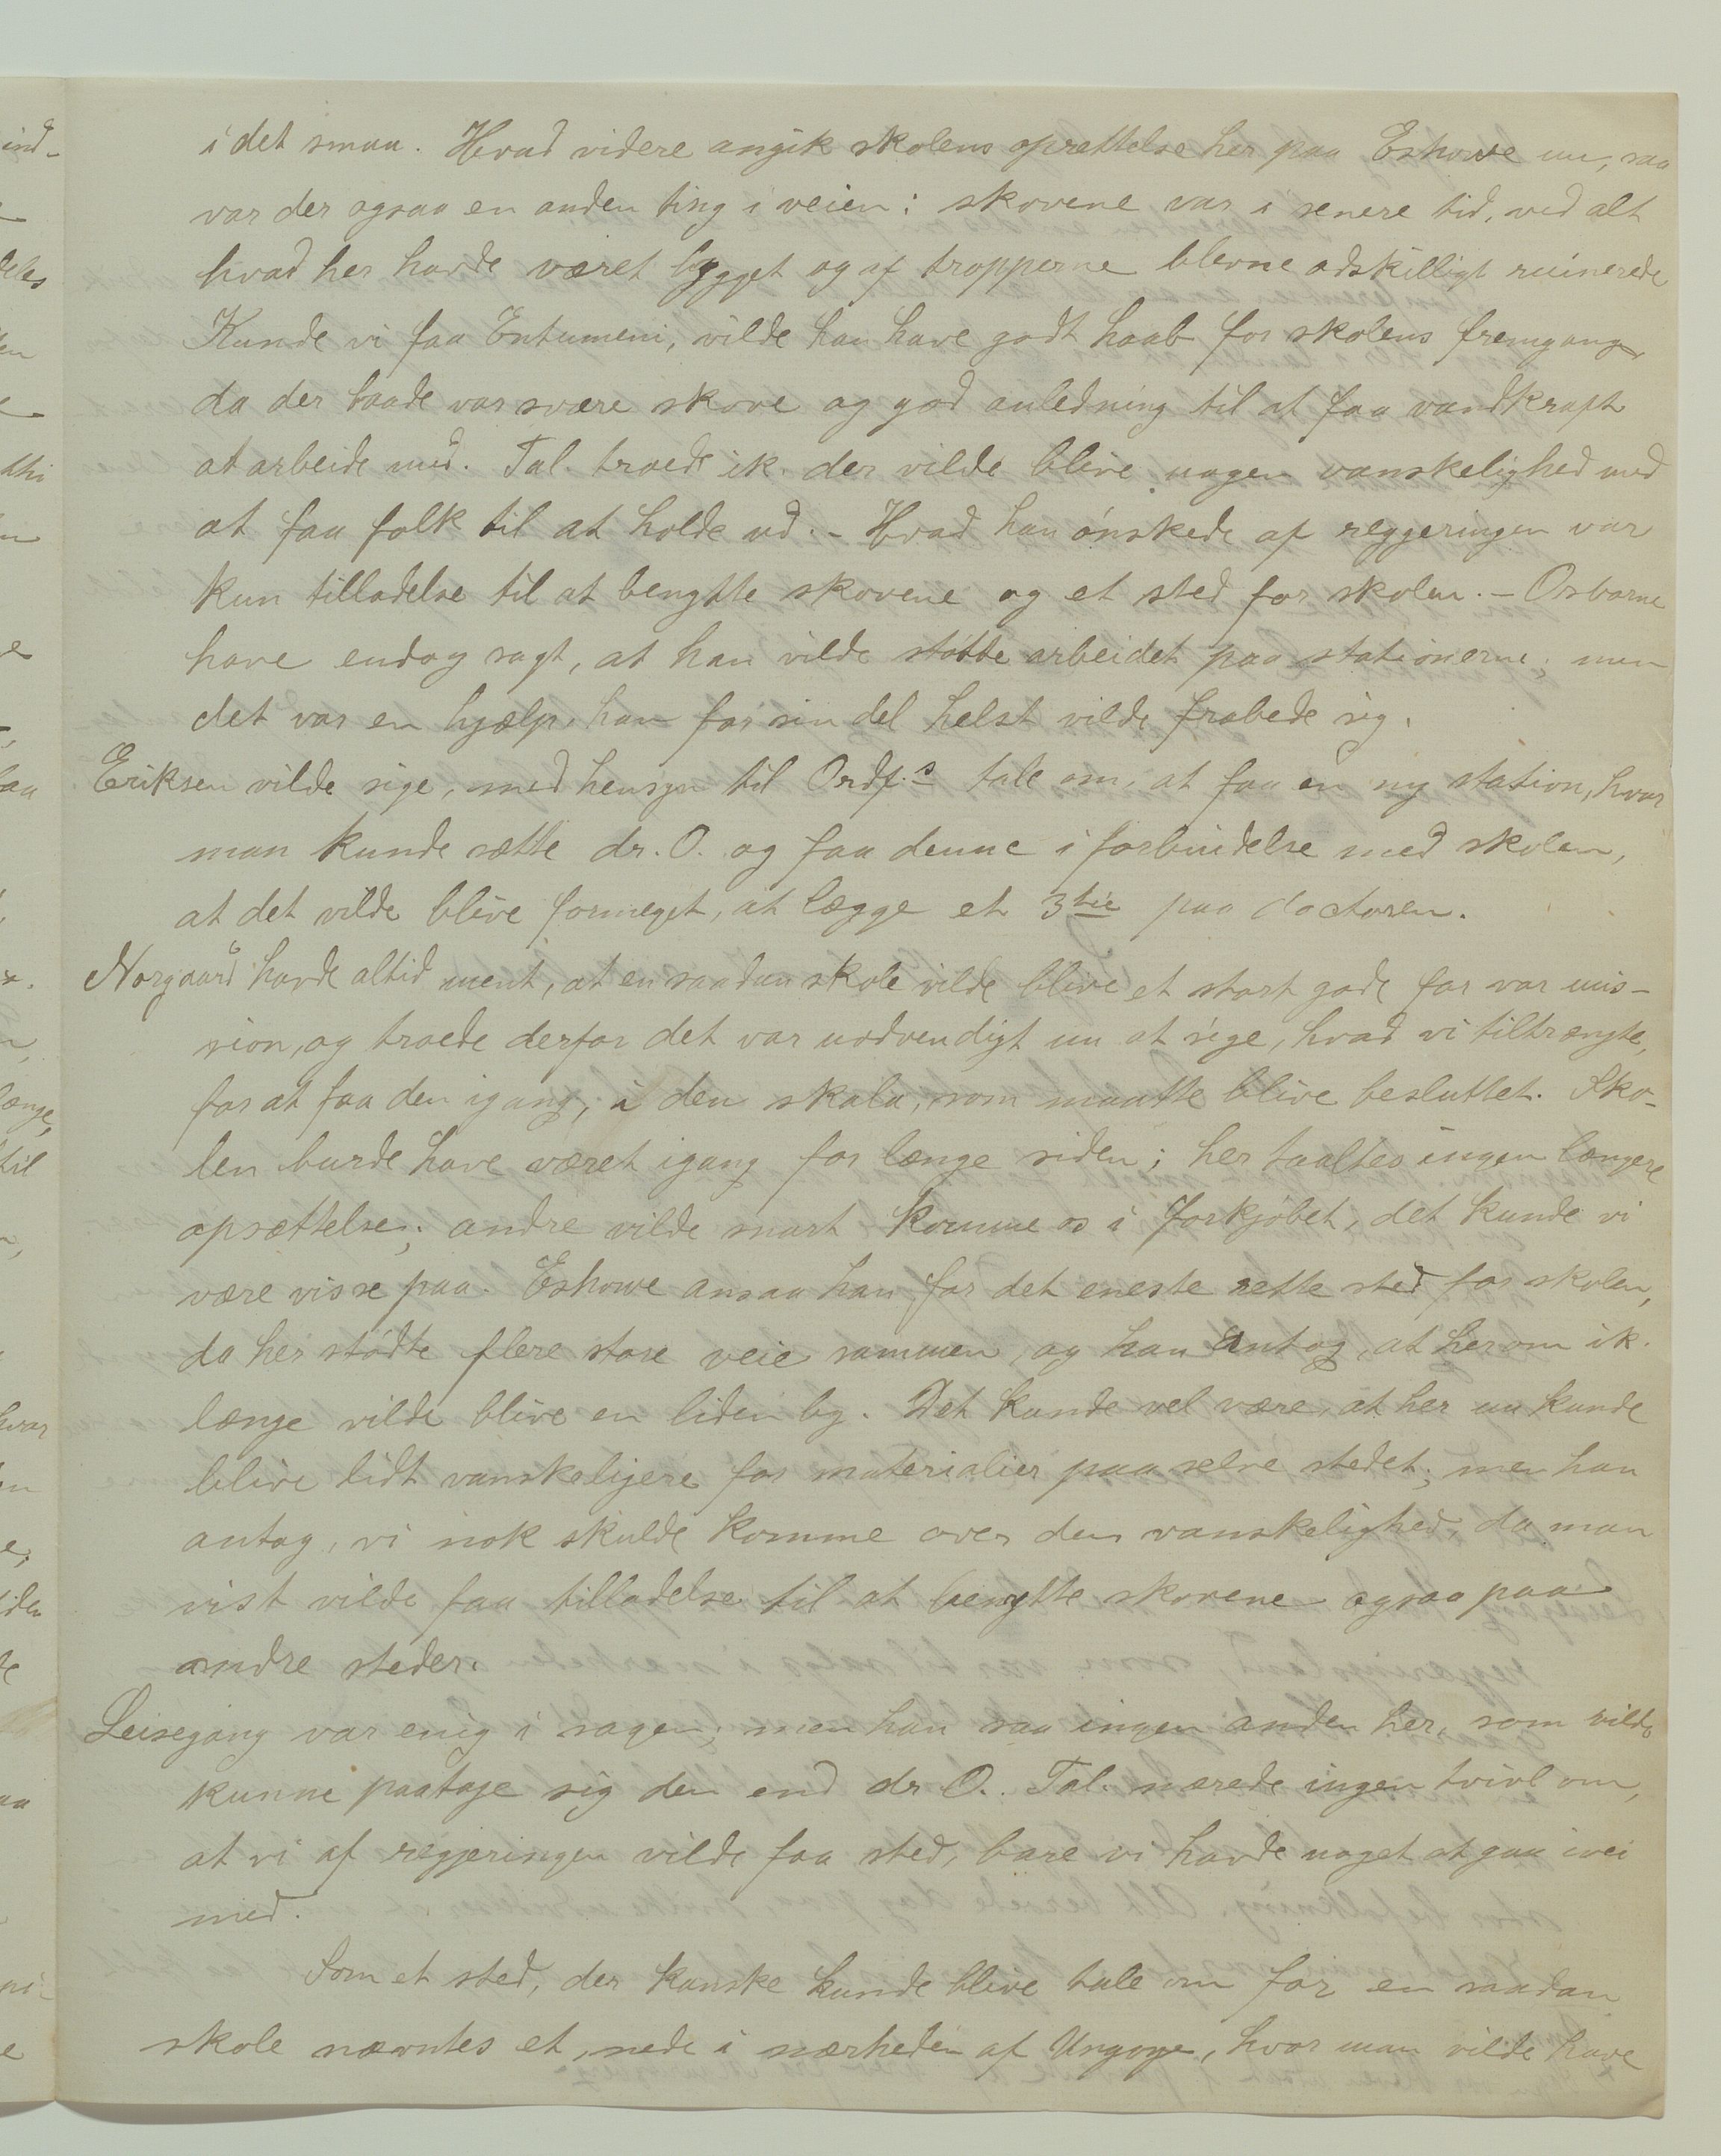 i det smaa. Hvad videre angik skolens oprettelse her paa Eshowe nu, saa
var der ogsaa en anden ting i veien: skovene var i senere tid, ved alt
hvad her havde været bygget og af tropperne blevne adskilligt ruinerede
Kunde vi faa Entumeni, vilde han have godt haab for skolens fremgang,
da der baade var svære skove og god anledning til at faa vandkraft
at arbeide med. Tal. troede ik. der vilde blive nogen vanskelighed med
at faa folk til at holde ud. - Hvad han ønskede af reggeringen var
kun tilladelse til at benytte skovene og et sted for skolen. - Osborne
have endog sagt, at han vilde støtte arbeidet paa stationerne; men
det var en hjælp, han for sin del helst vilde frabede sig.
Eriksen vilde sige, med hensyn til Ordf.s tale om, at faa en ny station, hvor
man kunde sætte dr. O. og faa denne i forbindelse med skolen,
at det vilde blive formeget, at lægge et 3tie paa doctoren.
Norgaard havde altid ment, at en saadan skole vilde blive et stort gode for vor mis-
sion, og troede derfor det var nødvendigt nu at sige, hvad vi tiltrængte,
for at faa den igang, i den skala, som maatte blive besluttet. Sko-
len burde have været igang for længe siden; her taaltes ingen længere
opsættelse; andre vilde snart komme os i forkjøbet, det kunde vi
være visse paa. Eshowe ansaa han for det eneste rette sted for skolen,
da her stødte flere store veie sammen, og han antog, at her om ik.
længe vilde blive en liden by. Det kunde vel være, at her nu kunde
blive lidt vanskeligere for materialier paa selve stedet; men han
antog, vi nok skulde komme over den vanskelighed, da man
vist vilde faa tilladelse til at benytte skovene ogsaa paa
andre steder.
Leisegang var enig i sagen; men han saa ingen anden her, som vilde
kunne paatage sig den end dr O. Tal. nærede ingen tvivl om,
at vi af regjeringen vilde faa sted, bare vi havde noget at gaa ivei
med.
Som et sted, der kanske kunde blive tale om for en saadan
skole nævntes et, nede i nærheden af Ungoye, hvor man vilde have